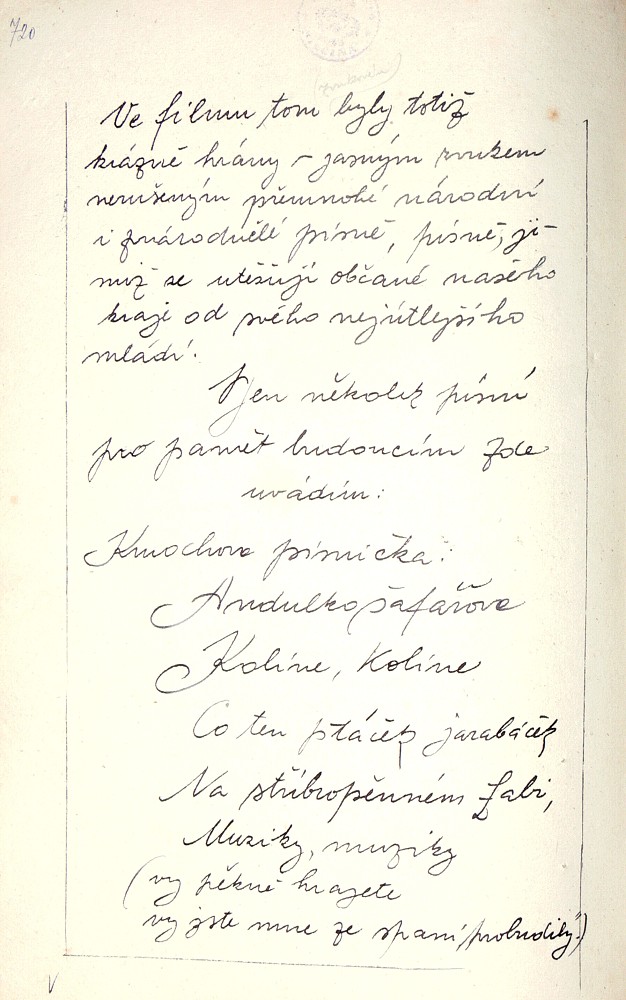 720
Ve filmu tom byly totiž
krásně hrány – jasným zvukem
nerušeným přemnohé národní
i znárodnělé písně, písně, ji-
miž se utěšují občané našeho
kraje od svého nejútlejšího
mládí.
Jen několik písní
pro paměť budoucím zde
uvádím:
Kmochova písnička:
Andulko šafářova
Kolíne, Kolíne
Co ten ptáček jarabáček
Na stříbropěnném Labi,
Muziky, muziky
(vy pěkně hrajete
vy jste mne ze spaní probudily.)
V